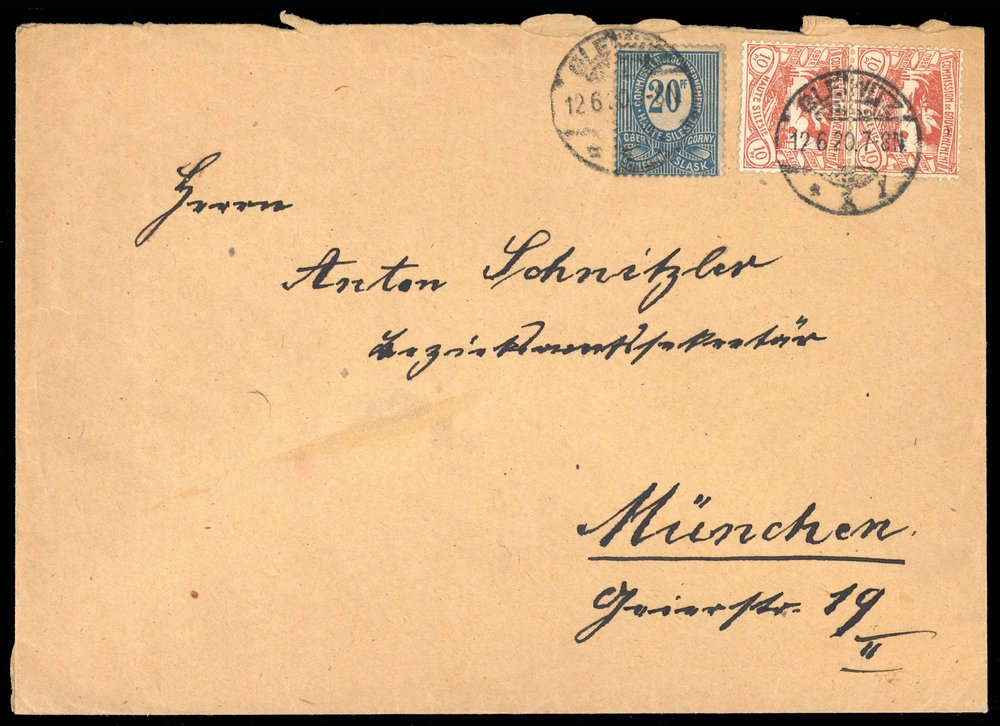 GLEIWITZ
12.6.20.
COMMISSION DE GOUVERNEMENT
20 Pf
HAUTE SILESIE
OBER GORNY
SCHLESIEN ŚLĄSK
10
HAUTE SILESIE
10
COMMISSION DE GOUVERNEMENT
10
GLEIWITZ
12.6.20.7-8N
* 1
Herrn
Anton Schnitzler
Bezirksamtssekretär
München.
Geierstr. 19
II